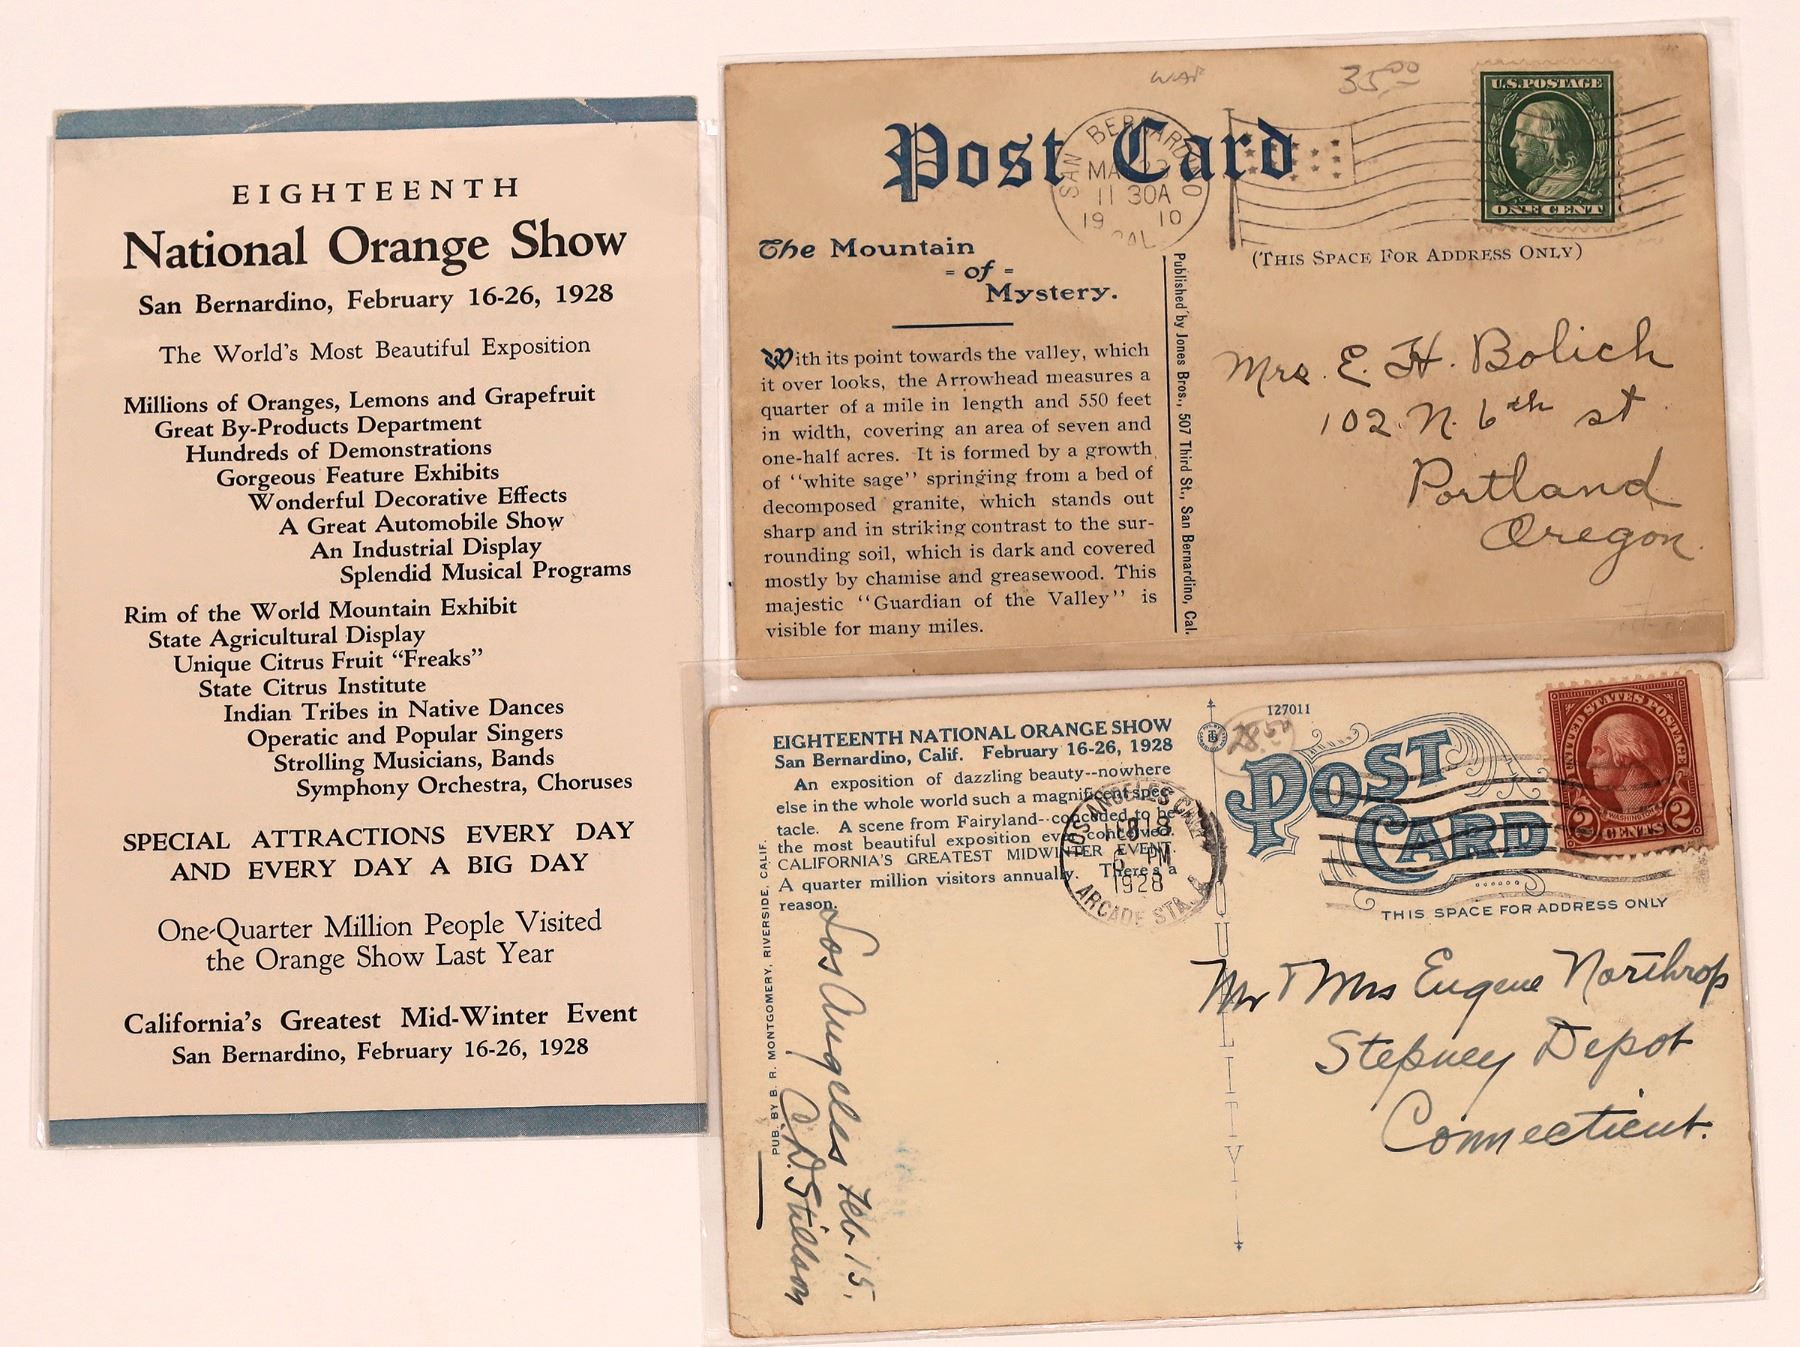 EIGHTEENTH
National Orange Show
San Bernardino, February 16-26, 1928
The World's Most Beautiful Exposition
Millions of Oranges, Lemons and Grapefruit
Great By-Products Department
Hundreds of Demonstrations
Gorgeous Feature Exhibits
Wonderful Decorative Effects
A Great Automobile Show
An Industrial Display
Splendid Musical Programs
Rim of the World Mountain Exhibit
State Agricultural Display
Unique Citrus Fruit "Freaks"
State Citrus Institute
Indian Tribes in Native Dances
Operatic and Popular Singers
Strolling Musicians, Bands
Symphony Orchestra, Choruses
SPECIAL ATTRACTIONS EVERY DAY
AND EVERY DAY A BIG DAY
One-Quarter Million People Visited
the Orange Show Last Year
California's Greatest Mid-Winter Event
San Bernardino, February 16-26, 1928
35.00
Post Card
SAN BERNARDINO
22
11 30A
19 10
CAL.
U.S. POSTAGE
ONE CENT
The Mountain
= of =
Mystery.
With its point towards the valley, which
it over looks, the Arrowhead measures a
quarter of a mile in length and 550 feet
in width, covering an area of seven and
one-half acres. It is formed by a growth
of "white sage" springing from a bed of
decomposed granite, which stands out
sharp and in striking contrast to the sur-
rounding soil, which is dark and covered
mostly by chamise and greasewood. This
majestic "Guardian of the Valley" is
visible for many miles.
Published by Jones Bros., 507 Third St., San Bernardino, Cal.
(THIS SPACE FOR ADDRESS ONLY)
Mrs. E. H. Bolich
102 N. 6th st
Portland
Oregon.
EIGHTEENTH NATIONAL ORANGE SHOW
San Bernardino, Calif. February 16-26, 1928
An exposition of dazzling beauty--nowhere
else in the whole world such a magnificent spec-
tacle. A scene from Fairyland--conceded to be
the most beautiful exposition ever conceived.
CALIFORNIA'S GREATEST MIDWINTER EVENT.
A quarter million visitors annually. There's a
reason.
PUB. BY B. R. MONTGOMERY, RIVERSIDE, CALIF.
Los Angeles Feb 15.
C. D. Stillson
LOS ANGELES
6 PM
1928
ARCADE STA.
127011
28.50
POST CARD
UNITED STATES POSTAGE
WASHINGTON
2 CENTS 2
THIS SPACE FOR ADDRESS ONLY
QUALITY
Mr & Mrs Eugene Northrop
Stepney Depot
Connecticut.